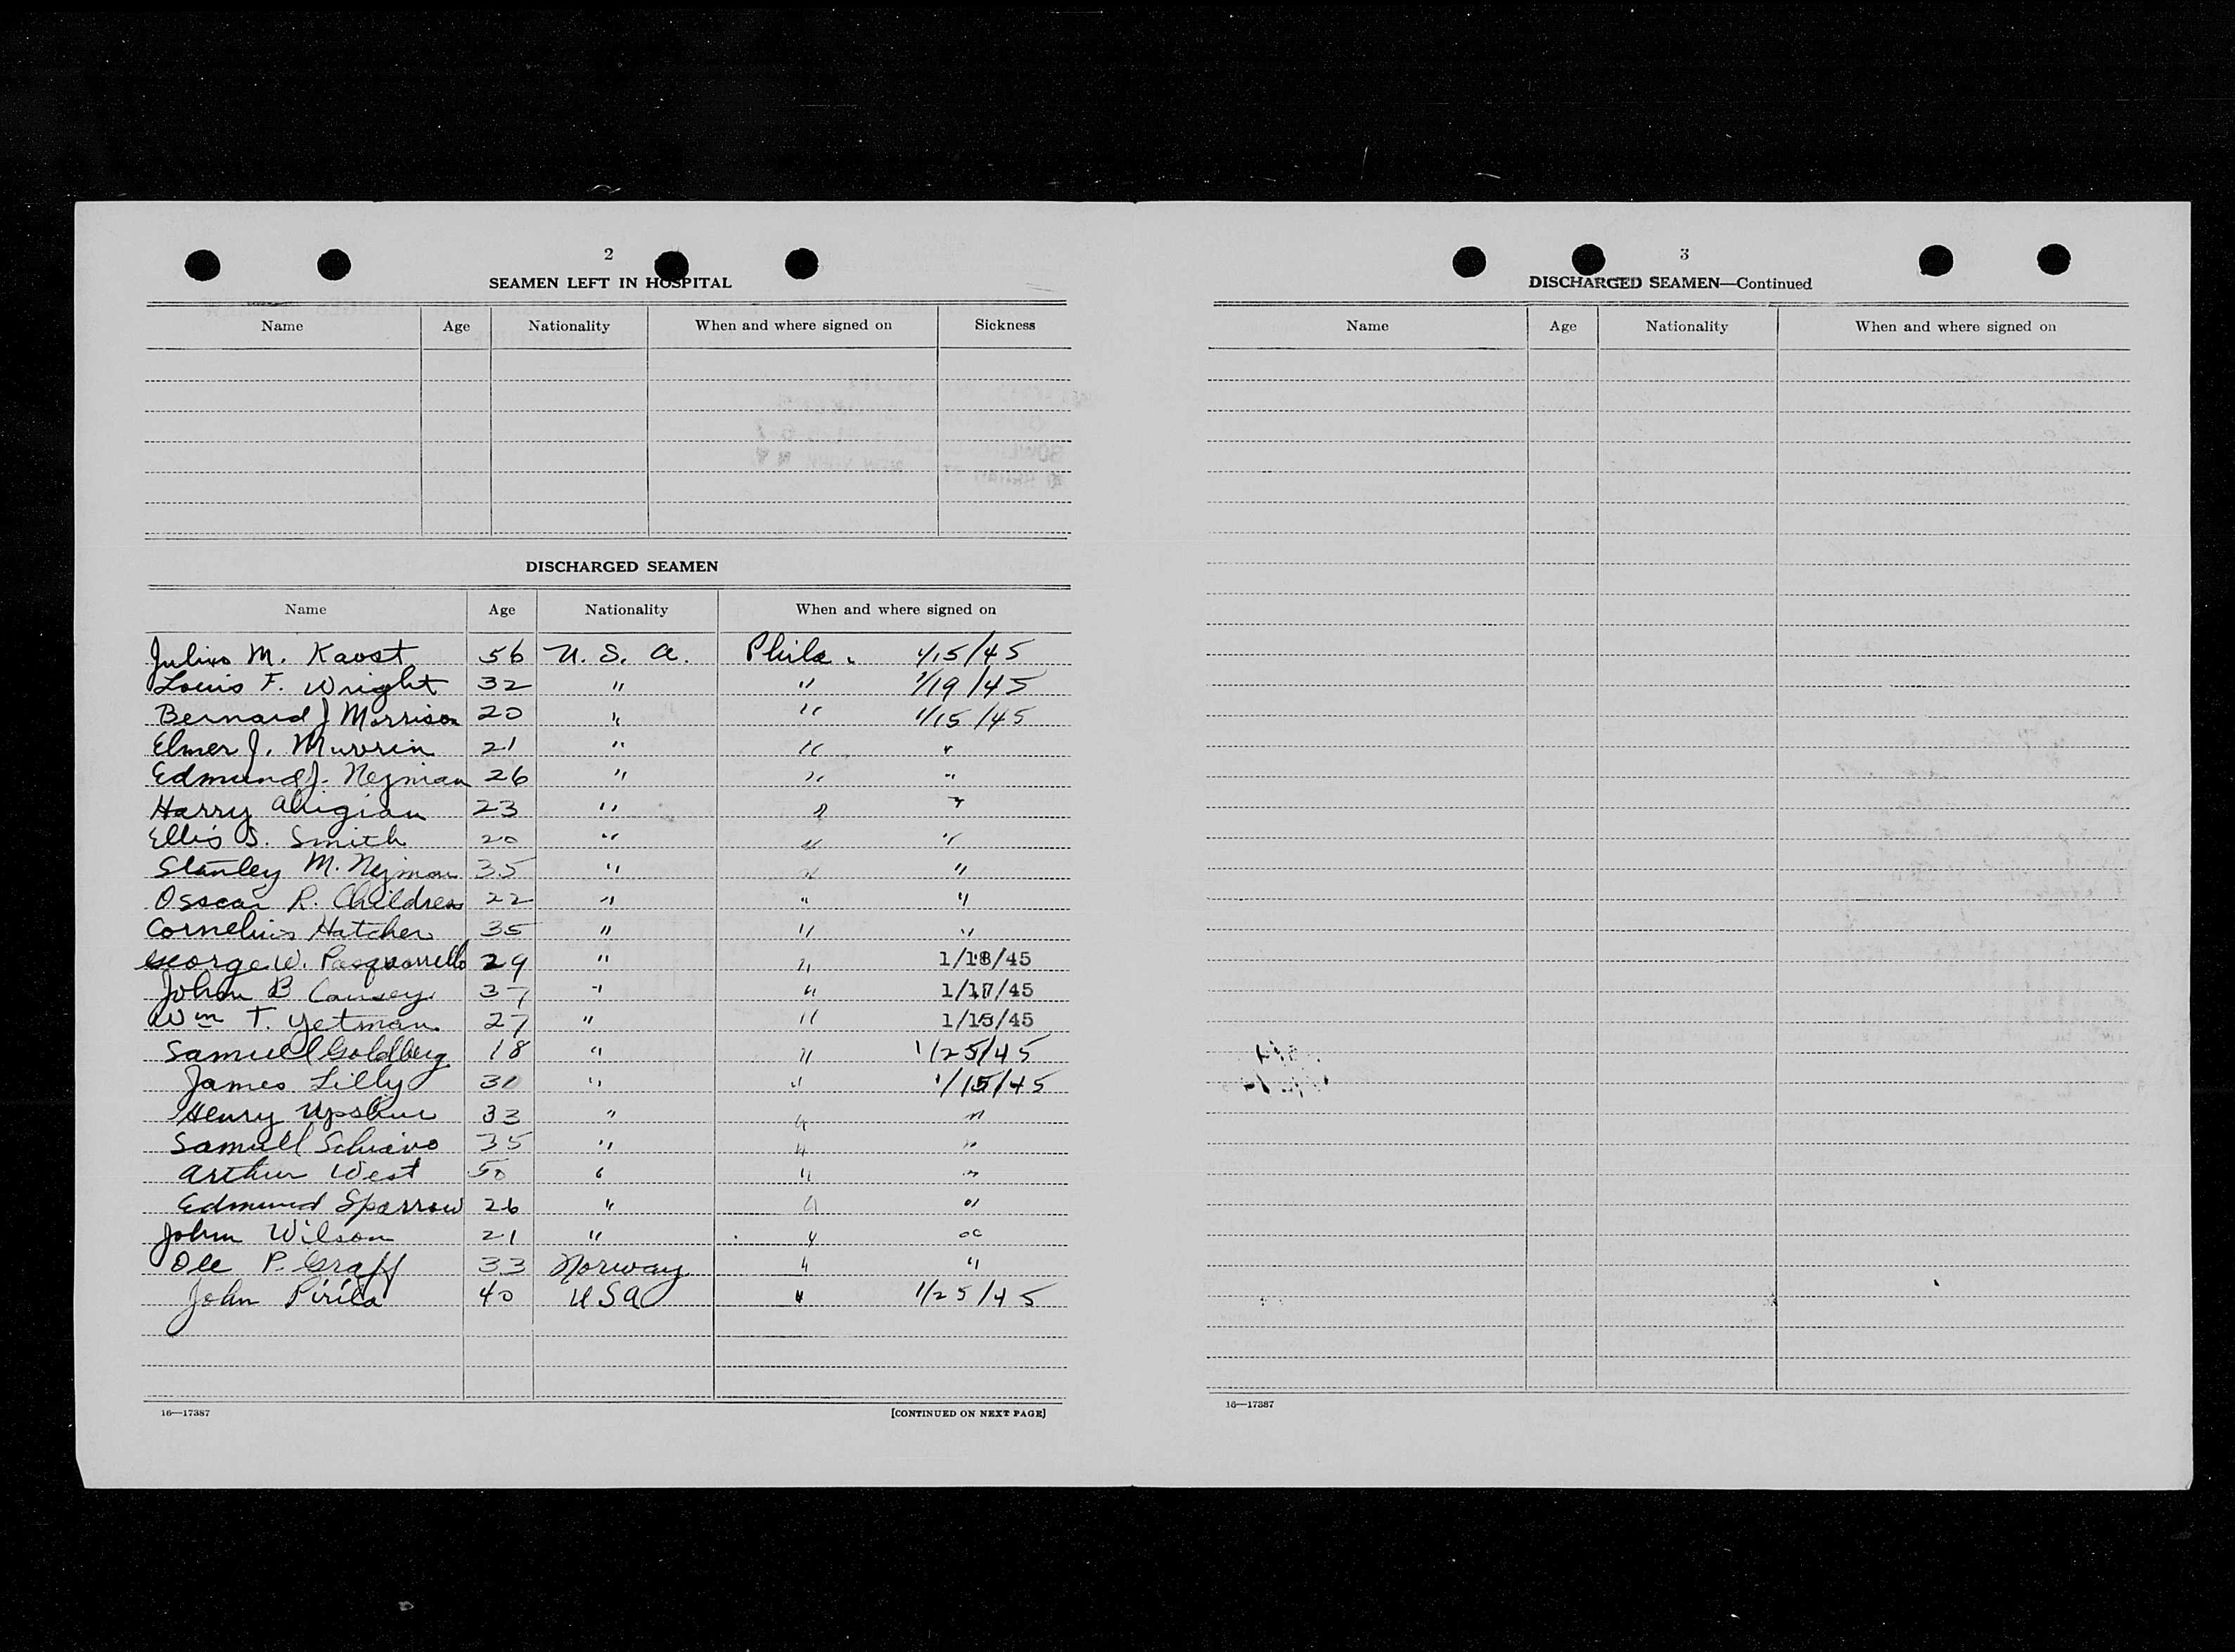 2
SEAMEN LEFT IN HOSPITAL
Name Age Nationality When and where signed on Sickness
DISCHARGED SEAMEN
Name Age Nationality When and where signed on
Julius M. Kavst 56 U. S. A. Phila. 1/15/45
Louis F. Wright 32 " " 1/19/45
Bernard J Morrison 20 " " 1/15/45
Elmer J. Muvrin 21 " " "
Edmund J. Nejman 26 " " "
Harry Ahigian 23 " " "
Ellis S. Smith 20 " " "
Stanley M. Nejman 35 " " "
Osscar R. Childres 22 " " "
Cornelius Hatcher 35 " " "
George W. Pasquarello 29 " " 1/18/45
John B Causey 37 " " 1/17/45
Wm T. Yetman 27 " " 1/15/45
Samuel Goldberg 18 " " 1/25/45
James Lilly 31 " " 1/15/45
Henry Upshur 33 " " "
Samuel Schiavo 35 " " "
Arthur West 50 " " "
Edmund Sparrow 26 " " "
John Wilson 21 " " "
Ole P. Graff 33 Norway " "
John Pirila 40 USA " 1/25/45
16—17387
[CONTINUED ON NEXT PAGE]
3
DISCHARGED SEAMEN—Continued
Name Age Nationality When and where signed on
16—17387